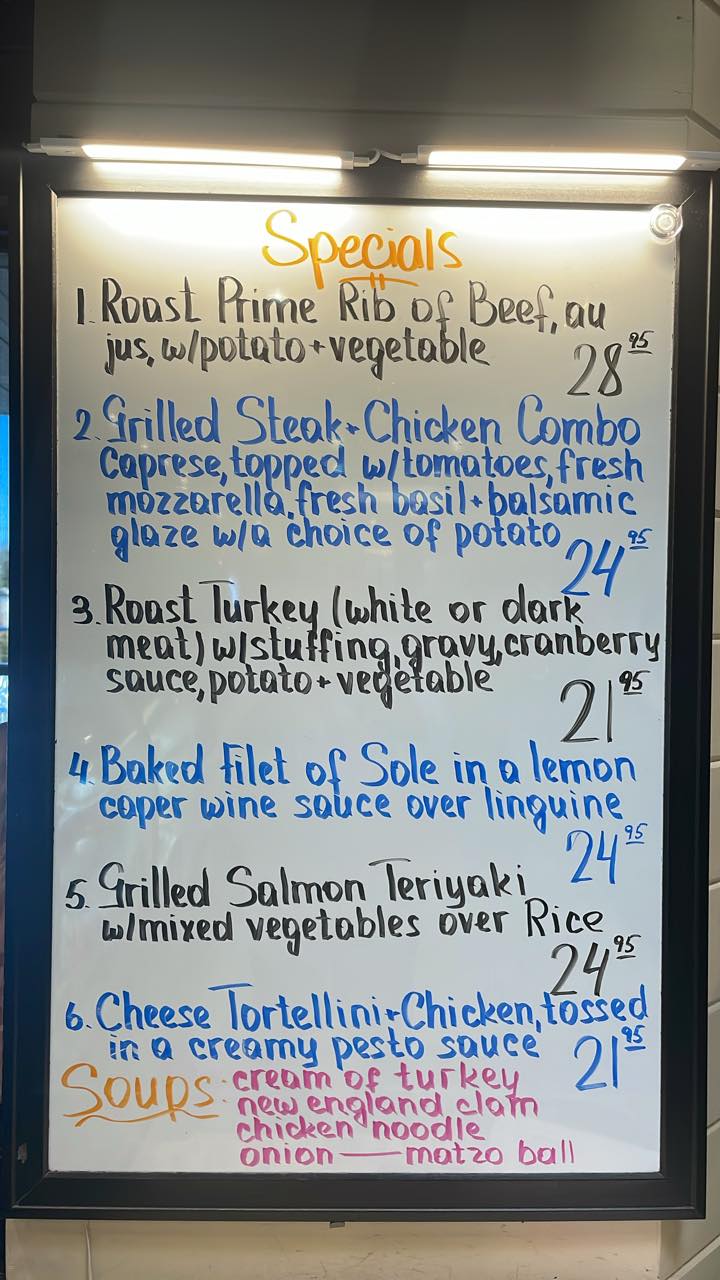 Specials
1. Roast Prime Rib of Beef, au
jus, w/potato + vegetable
28 95
2. Grilled Steak + Chicken Combo
Caprese, topped w/tomatoes, fresh
mozzarella, fresh basil + balsamic
glaze w/a choice of potato
24 95
3. Roast Turkey (white or dark
meat) w/stuffing, gravy, cranberry
sauce, potato + vegetable
21 95
4. Baked Filet of Sole in a lemon
caper wine sauce over linguine
24 95
5. Grilled Salmon Teriyaki
w/mixed vegetables over Rice
24 95
6. Cheese Tortellini + Chicken, tossed
in a creamy pesto sauce
21 95
Soups: cream of turkey
new england clam
chicken noodle
onion — matzo ball